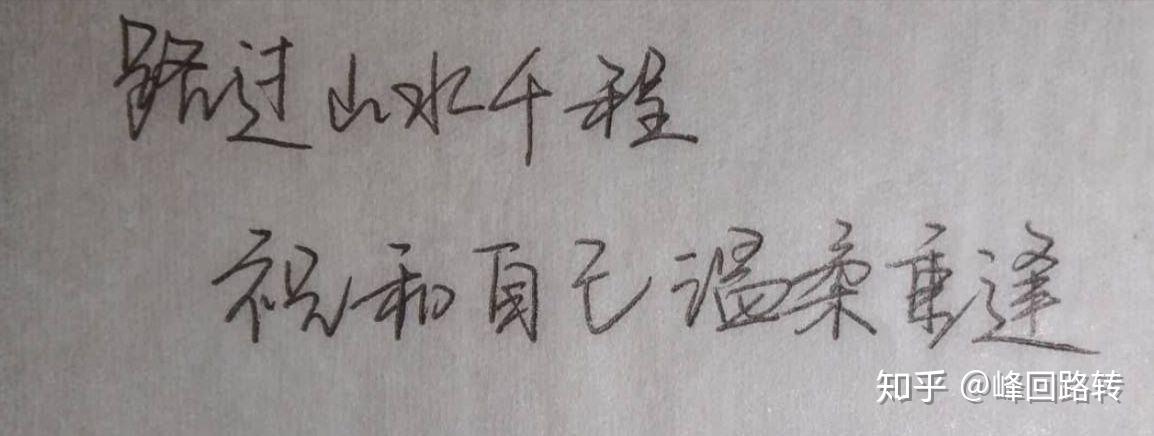 路过山水千程
祝和自己温柔重逢
知乎 @峰回路转